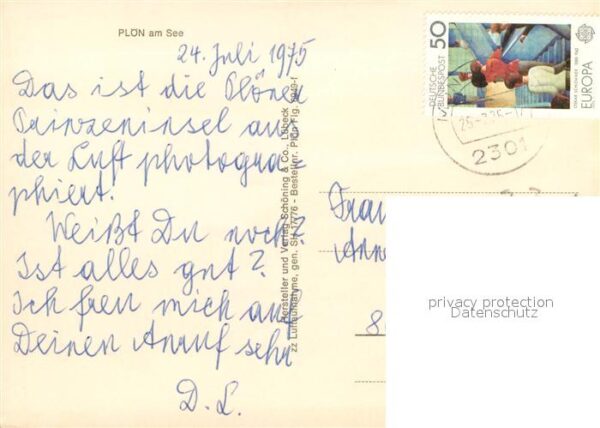 PLÖN am See
24. Juli 1975
Das ist die Plöner
Prinzeninsel aus
der Luft photogra-
phiert.
Weißt Du noch?
Ist alles gut?
Ich freu mich auf
Deinen Anruf sehr
D. L.
Hersteller und Verlag Schöning & Co., Lübeck
Luftaufnahme, gen. SH - Bestellnr. Plön
50
DEUTSCHE
BUNDESPOST
EUROPA
2301
Frau
Anne
8
privacy protection
Datenschutz